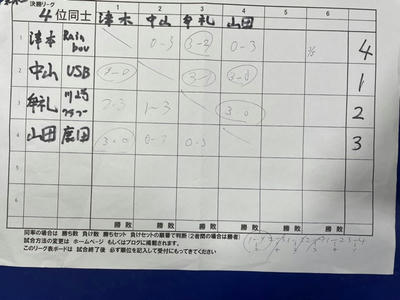 決勝リーグ
4位同士 津本 中山 牟礼 山田
1 2 3 4 5 6
1 津本 Rain bow 0-3 3-2 0-3 4
2 中山 USB 3-0 3-1 3-0 1
3 牟礼 川崎クラブ 2-3 1-3 3-0 2
4 山田 鹿田 3-0 0-3 0-3 3
5
6
勝 敗 勝 敗 勝 敗 勝 敗 勝 敗 勝 敗
同率の場合は 勝ち数 負け数 勝ちセット 負けセットの順番で判断(2者間の場合は勝者)
試合方法の変更は ホームページ もしくはブログに掲載されます。
このリーグ表ボードは 試合終了後 必ず順位を記入して受付にもってきてください